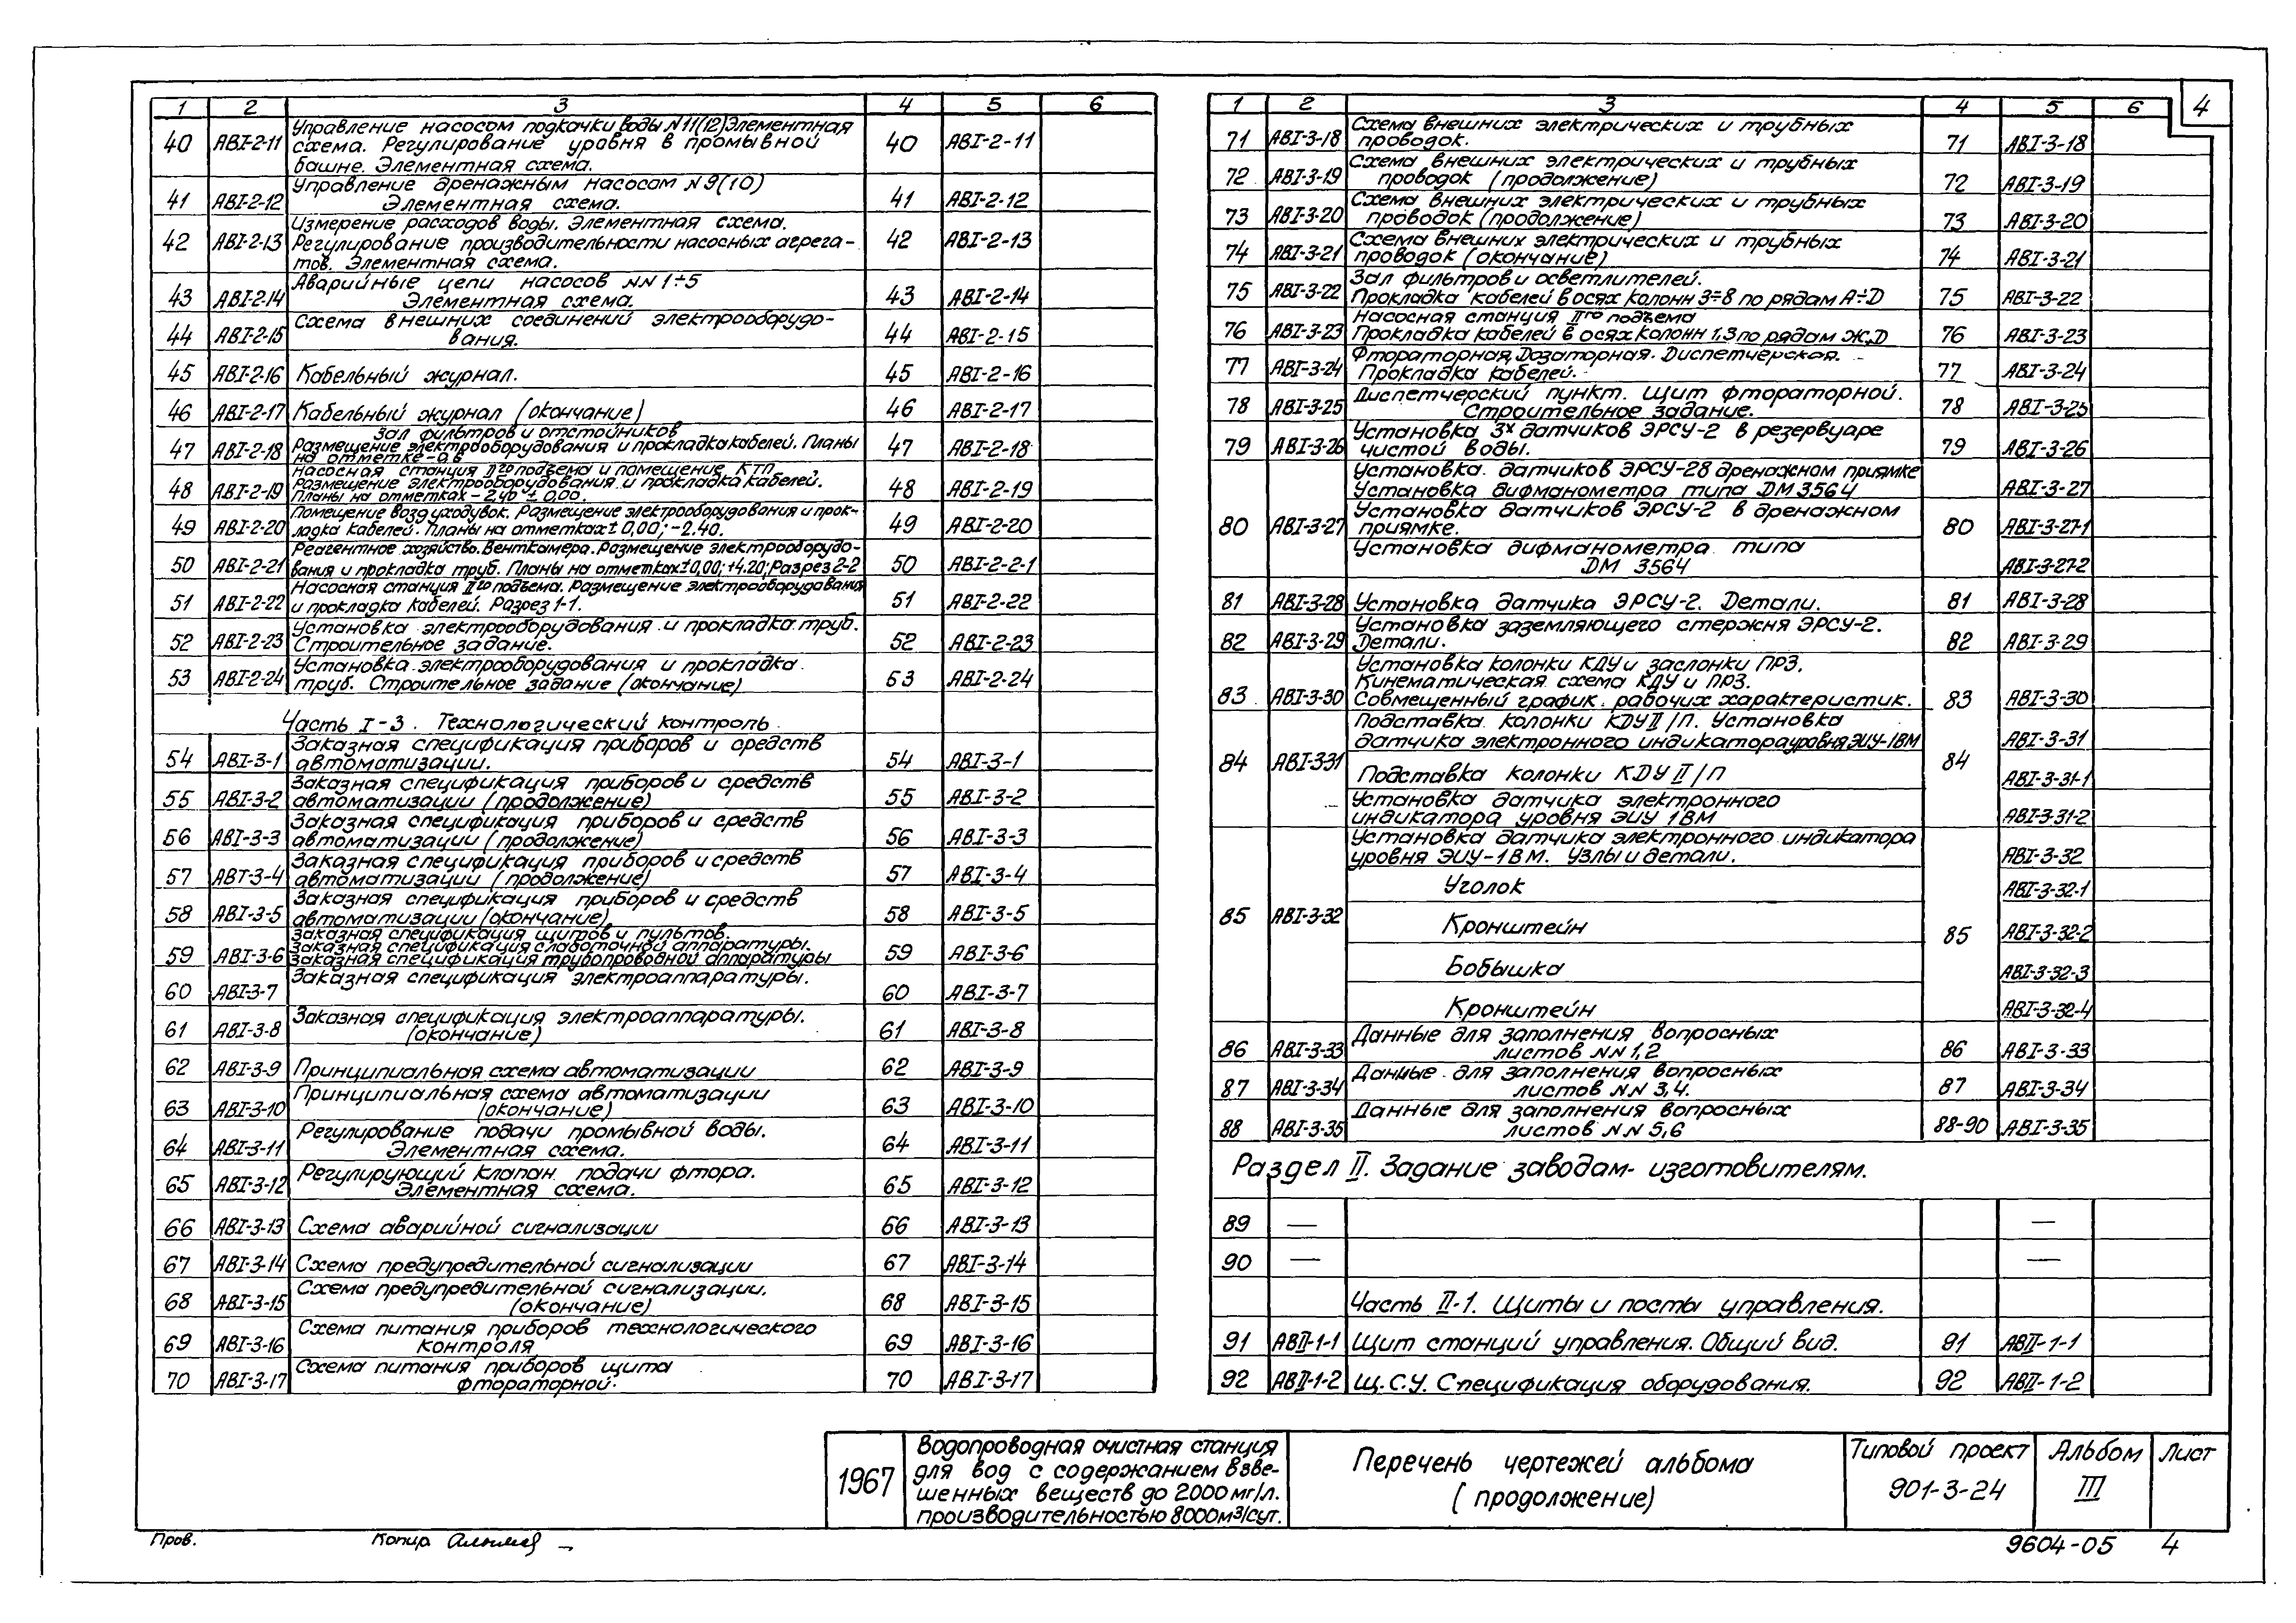 4
1 2 3 4 5 6
40 АВI-2-11 Управление насосом подкачки воды N11(12) Элементная 40 АВI-2-11
схема. Регулирование уровня в промывной
башне. Элементная схема.
41 АВI-2-12 Управление дренажным насосом N9(10) 41 АВI-2-12
Элементная схема.
42 АВI-2-13 Измерение расходов воды. Элементная схема. 42 АВI-2-13
Регулирование производительности насосных агрега-
тов. Элементная схема.
43 АВI-2-14 Аварийные цепи насосов NN 1÷5 43 АВI-2-14
Элементная схема.
44 АВI-2-15 Схема внешних соединений электрооборудо- 44 АВI-2-15
вания.
45 АВI-2-16 Кабельный журнал. 45 АВI-2-16
46 АВI-2-17 Кабельный журнал (окончание) 46 АВI-2-17
47 АВI-2-18 Зал фильтров и отстойников 47 АВI-2-18
Размещение электрооборудования и прокладка кабелей. Планы
на отметке -0.6
48 АВI-2-19 Насосная станция IIго подъема и помещение КТП 48 АВI-2-19
Размещение электрооборудования и прокладка кабелей.
Планы на отметках -2,40 ± 0,00.
49 АВI-2-20 Помещение воздуходувок. Размещение электрооборудования и прок- 49 АВI-2-20
ладка кабелей. Планы на отметках ± 0,00; -2.40.
50 АВI-2-21 Реагентное хозяйство. Венткамера. Размещение электрооборудо- 50 АВI-2-2-1
вания и прокладка труб. Планы на отметках ±0,00; +4.20; Разрез 2-2
51 АВI-2-22 Насосная станция IIго подъема. Размещение электрооборудования 51 АВI-2-22
и прокладка кабелей. Разрез 1-1.
52 АВI-2-23 Установка электрооборудования и прокладка труб. 52 АВI-2-23
Строительное задание.
53 АВI-2-24 Установка электрооборудования и прокладка 53 АВI-2-24
труб. Строительное задание (окончание)
Часть I-3. Технологический контроль
54 АВI-3-1 Заказная спецификация приборов и средств 54 АВI-3-1
автоматизации.
55 АВI-3-2 Заказная спецификация приборов и средств 55 АВI-3-2
автоматизации (продолжение)
56 АВI-3-3 Заказная спецификация приборов и средств 56 АВI-3-3
автоматизации (продолжение)
57 АВI-3-4 Заказная спецификация приборов и средств 57 АВI-3-4
автоматизации (продолжение)
58 АВI-3-5 Заказная спецификация приборов и средств 58 АВI-3-5
автоматизации (окончание)
59 АВI-3-6 Заказная спецификация щитов и пультов. 59 АВI-3-6
Заказная спецификация слаботочной аппаратуры.
Заказная спецификация трубопроводной аппаратуры
60 АВI-3-7 Заказная спецификация электроаппаратуры. 60 АВI-3-7
61 АВI-3-8 Заказная спецификация электроаппаратуры. 61 АВI-3-8
(окончание)
62 АВI-3-9 Принципиальная схема автоматизации 62 АВI-3-9
63 АВI-3-10 Принципиальная схема автоматизации 63 АВI-3-10
(окончание)
64 АВI-3-11 Регулирование подачи промывной воды. 64 АВI-3-11
Элементная схема.
65 АВI-3-12 Регулирующий клапан подачи фтора. 65 АВI-3-12
Элементная схема.
66 АВI-3-13 Схема аварийной сигнализации 66 АВI-3-13
67 АВI-3-14 Схема предупредительной сигнализации 67 АВI-3-14
68 АВI-3-15 Схема предупредительной сигнализации. 68 АВI-3-15
(окончание)
69 АВI-3-16 Схема питания приборов технологического 69 АВI-3-16
контроля
70 АВI-3-17 Схема питания приборов щита 70 АВI-3-17
фтораторной.
1 2 3 4 5 6
71 АВI-3-18 Схема внешних электрических и трубных 71 АВI-3-18
проводок.
72 АВI-3-19 Схема внешних электрических и трубных 72 АВI-3-19
проводок (продолжение)
73 АВI-3-20 Схема внешних электрических и трубных 73 АВI-3-20
проводок (продолжение)
74 АВI-3-21 Схема внешних электрических и трубных 74 АВI-3-21
проводок (окончание)
75 АВI-3-22 Зал фильтров и осветлителей. 75 АВI-3-22
Прокладка кабелей в осях колонн 3÷8 по рядам А÷D
76 АВI-3-23 Насосная станция IIго подъема 76 АВI-3-23
Прокладка кабелей в осях колонн 1,3 по рядам Ж,D
77 АВI-3-24 Фтораторная, Дозаторная. Диспетчерская. 77 АВI-3-24
Прокладка кабелей.
78 АВI-3-25 Диспетчерский пункт. Щит фтораторной. 78 АВI-3-25
Строительное задание.
79 АВI-3-26 Установка 3х датчиков ЭРСУ-2 в резервуаре 79 АВI-3-26
чистой воды.
80 АВI-3-27 Установка датчиков ЭРСУ-2в дренажном приямке 80 АВI-3-27
Установка дифманометра типа DM 3564
Установка датчиков ЭРСУ-2 в дренажном АВI-3-27-1
приямке.
Установка дифманометра типа АВI-3-27-2
DM 3564
81 АВI-3-28 Установка датчика ЭРСУ-2. Детали. 81 АВI-3-28
82 АВI-3-29 Установка заземляющего стержня ЭРСУ-2. 82 АВI-3-29
Детали.
83 АВI-3-30 Установка колонки КДУ и заслонки ПРЗ. 83 АВI-3-30
Кинематическая схема КДУ и ПРЗ.
Совмещенный график рабочих характеристик.
84 АВI-331 Подставка колонки КДУII/П. Установка 84 АВI-3-31
датчика электронного индикатора уровня ЭИУ-1ВМ
Подставка колонки КДУ II/П АВI-3-31-1
Установка датчика электронного АВI-3-31-2
индикатора уровня ЭИУ 1ВМ
85 АВI-3-32 Установка датчика электронного индикатора 85 АВI-3-32
уровня ЭИУ-1ВМ. Узлы и детали.
Уголок АВI-3-32-1
Кронштейн АВI-3-32-2
Бобышка АВI-3-32-3
Кронштейн АВI-3-32-4
86 АВI-3-33 Данные для заполнения вопросных 86 АВI-3-33
листов NN 1,2
87 АВI-3-34 Данные для заполнения вопросных 87 АВI-3-34
листов NN 3,4.
88 АВI-3-35 Данные для заполнения вопросных 88-90 АВI-3-35
листов NN 5,6
Раздел II. Задание заводам-изготовителям.
89 — —
90 — —
Часть II-1. Щиты и посты управления.
91 АВII-1-1 Щит станций управления. Общий вид. 91 АВII-1-1
92 АВII-1-2 Щ.С.У. Спецификация оборудования. 92 АВII-1-2
1967
Водопроводная очистная станция
для вод с содержанием взве-
шенных веществ до 2000 мг/л.
производительностью 8000м3/сут.
Перечень чертежей альбома
(продолжение)
Типовой проект
901-3-24
Альбом
III
Лист
Пров.
Копир.
9604-05 4